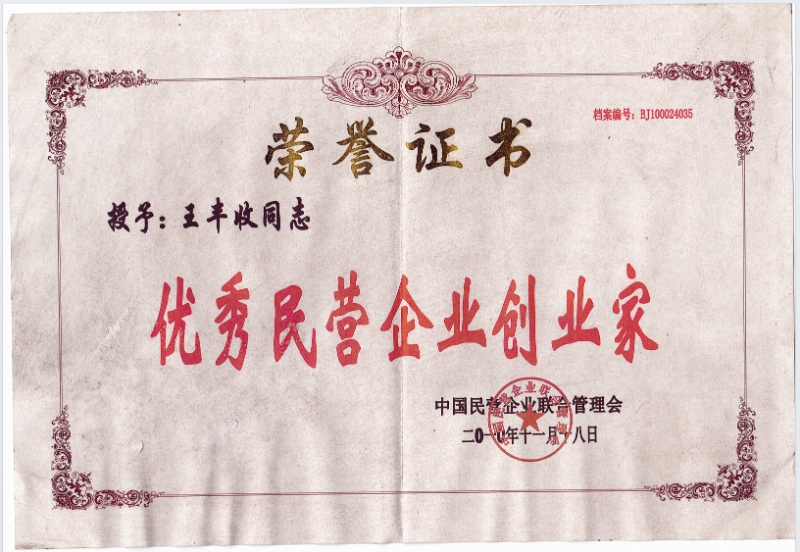 档案编号：BJ100024035
荣誉证书
授予：王丰收同志
优秀民营企业创业家
中国民营企业联合管理会
二〇一〇年十一月十八日